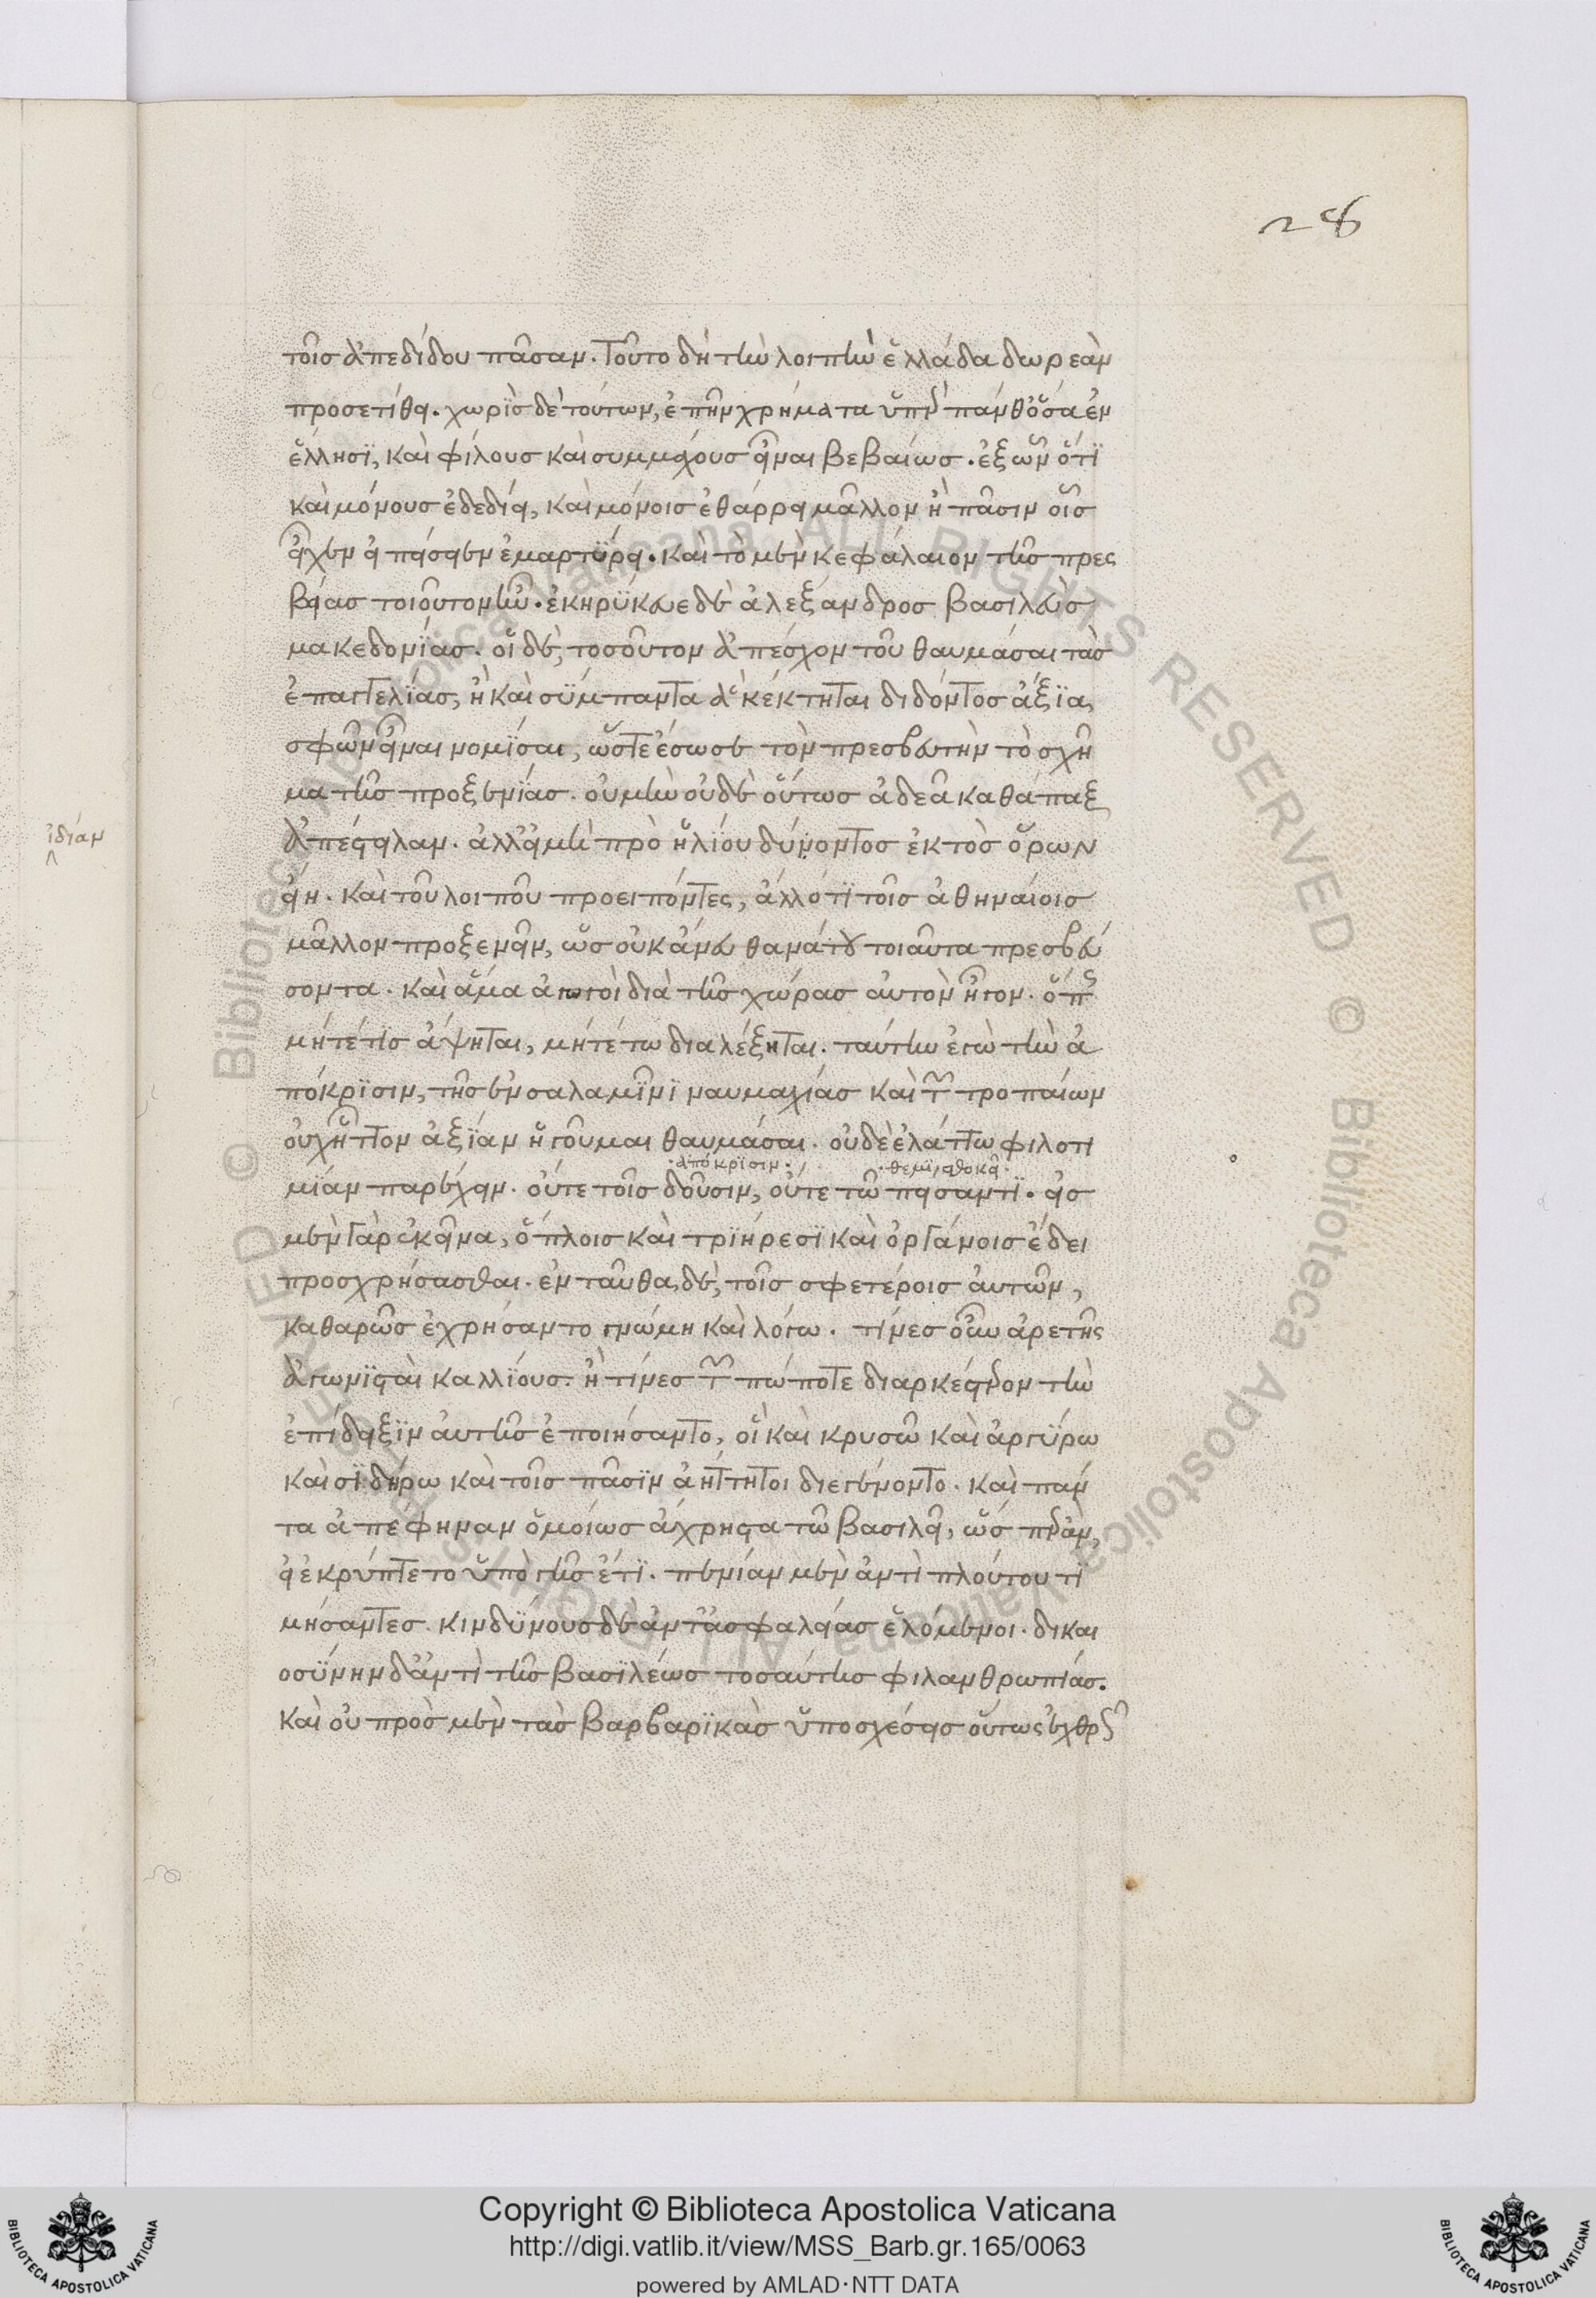 28
τοῖσ ἀπεδίδου πᾶσαν. τοῦτο δὴ τὴν λοιπὴν ἑλλάδα δωρεὰν
προσετίθει. χωρὶσ δὲ τούτων, ἐπῆν χρήματα ὑπὲρ πάνθ' ὅσα ἐν
ἕλλησϊ, καὶ φίλουσ καὶ συμμάχουσ εἶναι βεβαίωσ. ἐξ ὧν ὅτϊ
καὶ μόνουσ ἐδεδίει, καὶ μόνοισ ἐθάρρει μᾶλλον ἢ πᾶσιν οἷσ
εἶχεν εἰ πείσειεν ἐμαρτύρει. καὶ τὸ μὲν κεφάλαιον τῆσ πρεσ
βείασ τοιοῦτον ἦν. ἐκηρϋκευε δὲ ἀλεξανδροσ βασιλεὺσ
μακεδονΐασ. οἱ δὲ, τοσοῦτον ἀπέσχον τοῦ θαυμάσαι τὰσ
ἐπαγγελΐασ, ἢ καὶ σϋμπαντα ἃ κέκτηται διδόντοσ ἀξϊα
σφῶν εἶναι νομΐσαι, ὥστε ἔσωσε τὸν πρεσβευτὴν τὸ σχῆ
μα τῆσ προξενΐασ. οὐ μὴν οὐδὲ οὕτωσ ἀδεᾶ καθάπαξ
ἀπέστειλαν. ἀλλ' εἰ μὴ πρὸ ἡλΐου δύνοντοσ ἐκτὸσ ὅρων
εἴη. καὶ τοῦ λοιποῦ προειπόντεσ, ἀλλότϊ τοῖσ ἀθηναίοισ
μᾶλλον προξενεῖν, ὡσ οὐκ ἄνευ θανάτου τοιαῦτα πρεσβεύ
σοντα. καὶ ἅμα ἀγωγοὶ διὰ τῆσ χώρασ αὐτὸν ἦγον. ὅπωσ
μήτέ τισ ἅψηται, μήτέ τω διαλέξηται. ταύτην ἐγὼ τὴν ἀ
πόκρϊσιν, τῆσ ἐν σαλαμῖνϊ ναυμαχίασ καὶ τῶν τροπαίων
οὐχ ἧττον ἀξΐαν ἡγοῦμαι θαυμάσαι. οὐδὲ ἐλάττω φιλοτι
·ἀπόκρϊσιν· ·θεμϊστοκλεῖ·
μΐαν παρέχειν. οὔτε τοῖσ δοῦσιν, οὔτε τῶ πείσαντϊ. εἰσ
μὲν γὰρ ἐκεῖνα, ὅπλοισ καὶ τρϊήρεσϊ καὶ ὀργάνοισ ἔδει
προσχρήσασθαι. ἐνταῦθα δὲ, τοῖσ σφετέροισ αὐτῶν,
καθαρῶσ ἐχρήσαντο γνώμη καὶ λόγω. τίνεσ οὖν ἀρετῆσ
ἀγωνϊσταὶ καλλΐουσ. ἢ τίνεσ τῶν πώποτε διαρκέστερον τὴν
ἐπίδειξϊν αὐτῆσ ἐποιήσαντο, οἳ καὶ χρυσῶ καὶ ἀργΰρω
καὶ σϊδήρω καὶ τοῖσ πᾶσϊν ἀήττητοι διεγένοντο. καὶ πάν
τα ἀπέφηναν ὁμοίωσ ἄχρηστα τῶ βασιλεῖ, ὥσπερ ἂν,
εἰ ἐκρύπτετο ὑπὸ γῆσ ἔτϊ. πενίαν μὲν ἀντὶ πλούτου τϊ
μήσαντεσ. κινδΰνουσ δὲ ἀντ' ἀσφαλείασ ἑλόμενοι. δικαι
οσΰνην δ' ἀντὶ τῆσ βασϊλέωσ τοσαύτησ φιλανθρωπίασ.
καὶ οὐ πρὸσ μὲν τὰσ βαρβαρϊκὰσ ὑποσχέσεισ οὕτωσ ἐχθρῶσ
ἰδίαν
Copyright © Biblioteca Apostolica Vaticana
http://digi.vatlib.it/view/MSS_Barb.gr.165/0063
powered by AMLAD·NTT DATA